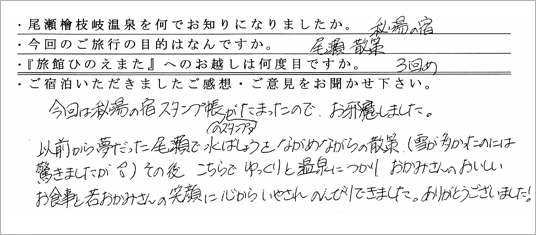 ・尾瀬檜枝岐温泉を何でお知りになりましたか。 秘湯の宿
・今回のご旅行の目的はなんですか。 尾瀬 散策
・『旅館ひのえまた』へのお越しは何度目ですか。 3回め
・ご宿泊いただきましたご感想・ご意見をお聞かせ下さい。
今回は秘湯の宿スタンプ帳がたまったので、お邪魔しました。
(のスタンプが)
以前から夢だった尾瀬で水ばしょうをながめながらの散策(雪が多かったのには
驚きましたが)その後 こちらでゆっくりと温泉につかり おかみさんのおいしい
お食事と若おかみさんの笑顔に心からいやされ のんびりできました。ありがとうございました!